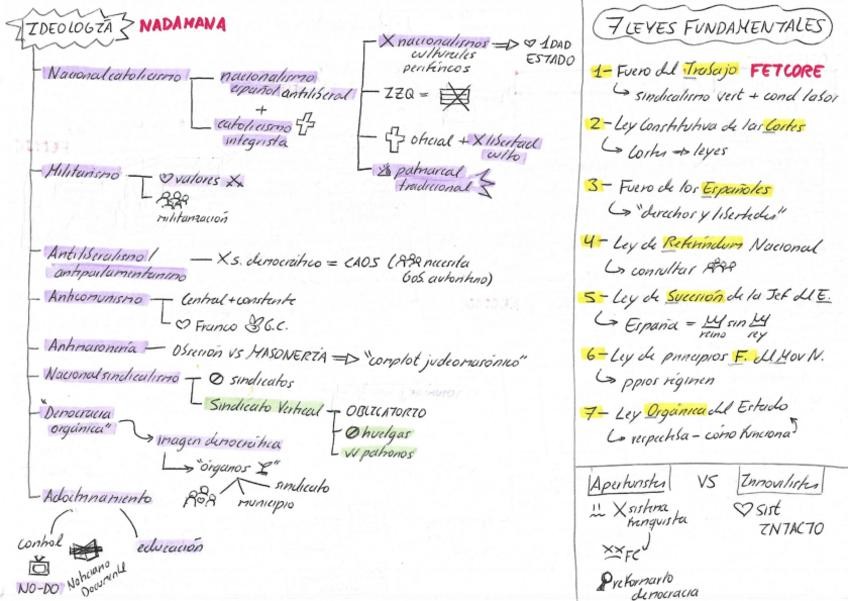 IDEOLOGÍA NADAMANA
Nacionalcatolicismo
nacionalismo
español antiliberal
+
catolicismo
integrista
X nacionalismos
culturales
periféricos
1DAD
ESTADO
IZQ =
oficial + X libertad
culto
patriarcal
tradicional
Militarismo
valores
militarización
Antiliberalismo/
antiparlamentarismo
X s. democrático = CAOS (necesita
Gob autoritario)
Anticomunismo
Central + constante
Franco G.C.
Antimasonería
OBSESIÓN VS MASONERÍA ⇒ "complot judeomasónico"
Nacionalsindicalismo
sindicatos
Sindicato Vertical
OBLIGATORIO
huelgas
patronos
"Democracia
orgánica"
imagen democrática
"órganos"
sindicato
municipio
Adoctrinamiento
control
NO-DO
Noticiario
Documental
educación
7 LEYES FUNDAMENTALES
1- Fuero del Trabajo FETCORE
sindicalismo vert + cond labor
2- Ley Constitutiva de las Cortes
Cortes → leyes
3- Fuero de los Españoles
"derechos y libertades"
4- Ley de Referéndum Nacional
consultar
5- Ley de Sucesión de la Jef del E.
España = sin
reino rey
6- Ley de principios F. del Mov N.
ppios régimen
7- Ley Orgánica del Estado
respectiva - cómo funciona
Aperturistas VS Inmovilistas
X sistema
franquista
FC
reformarlo
democracia
Sist
INTACTO